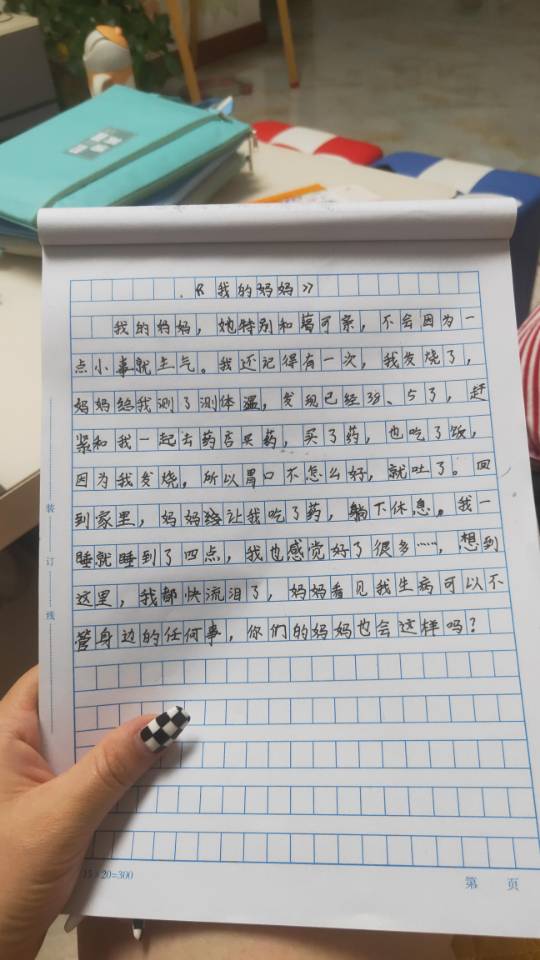 《我的妈妈》
我的妈妈，她特别和蔼可亲，不会因为一
点小事就生气。我还记得有一次，我发烧了，
妈妈给我测了测体温，发现已经39、5了，赶
紧和我一起去药店买药，买了药，也吃了饭，
因为我发烧，所以胃口不怎么好，就吐了。回
到家里，妈妈让我吃了药，躺下休息。我一
睡就睡到了四点，我也感觉好了很多……，想到
这里，我都快流泪了，妈妈看见我生病可以不
管身边的任何事，你们的妈妈也会这样吗？
装
订
线
15×20=300
第 页